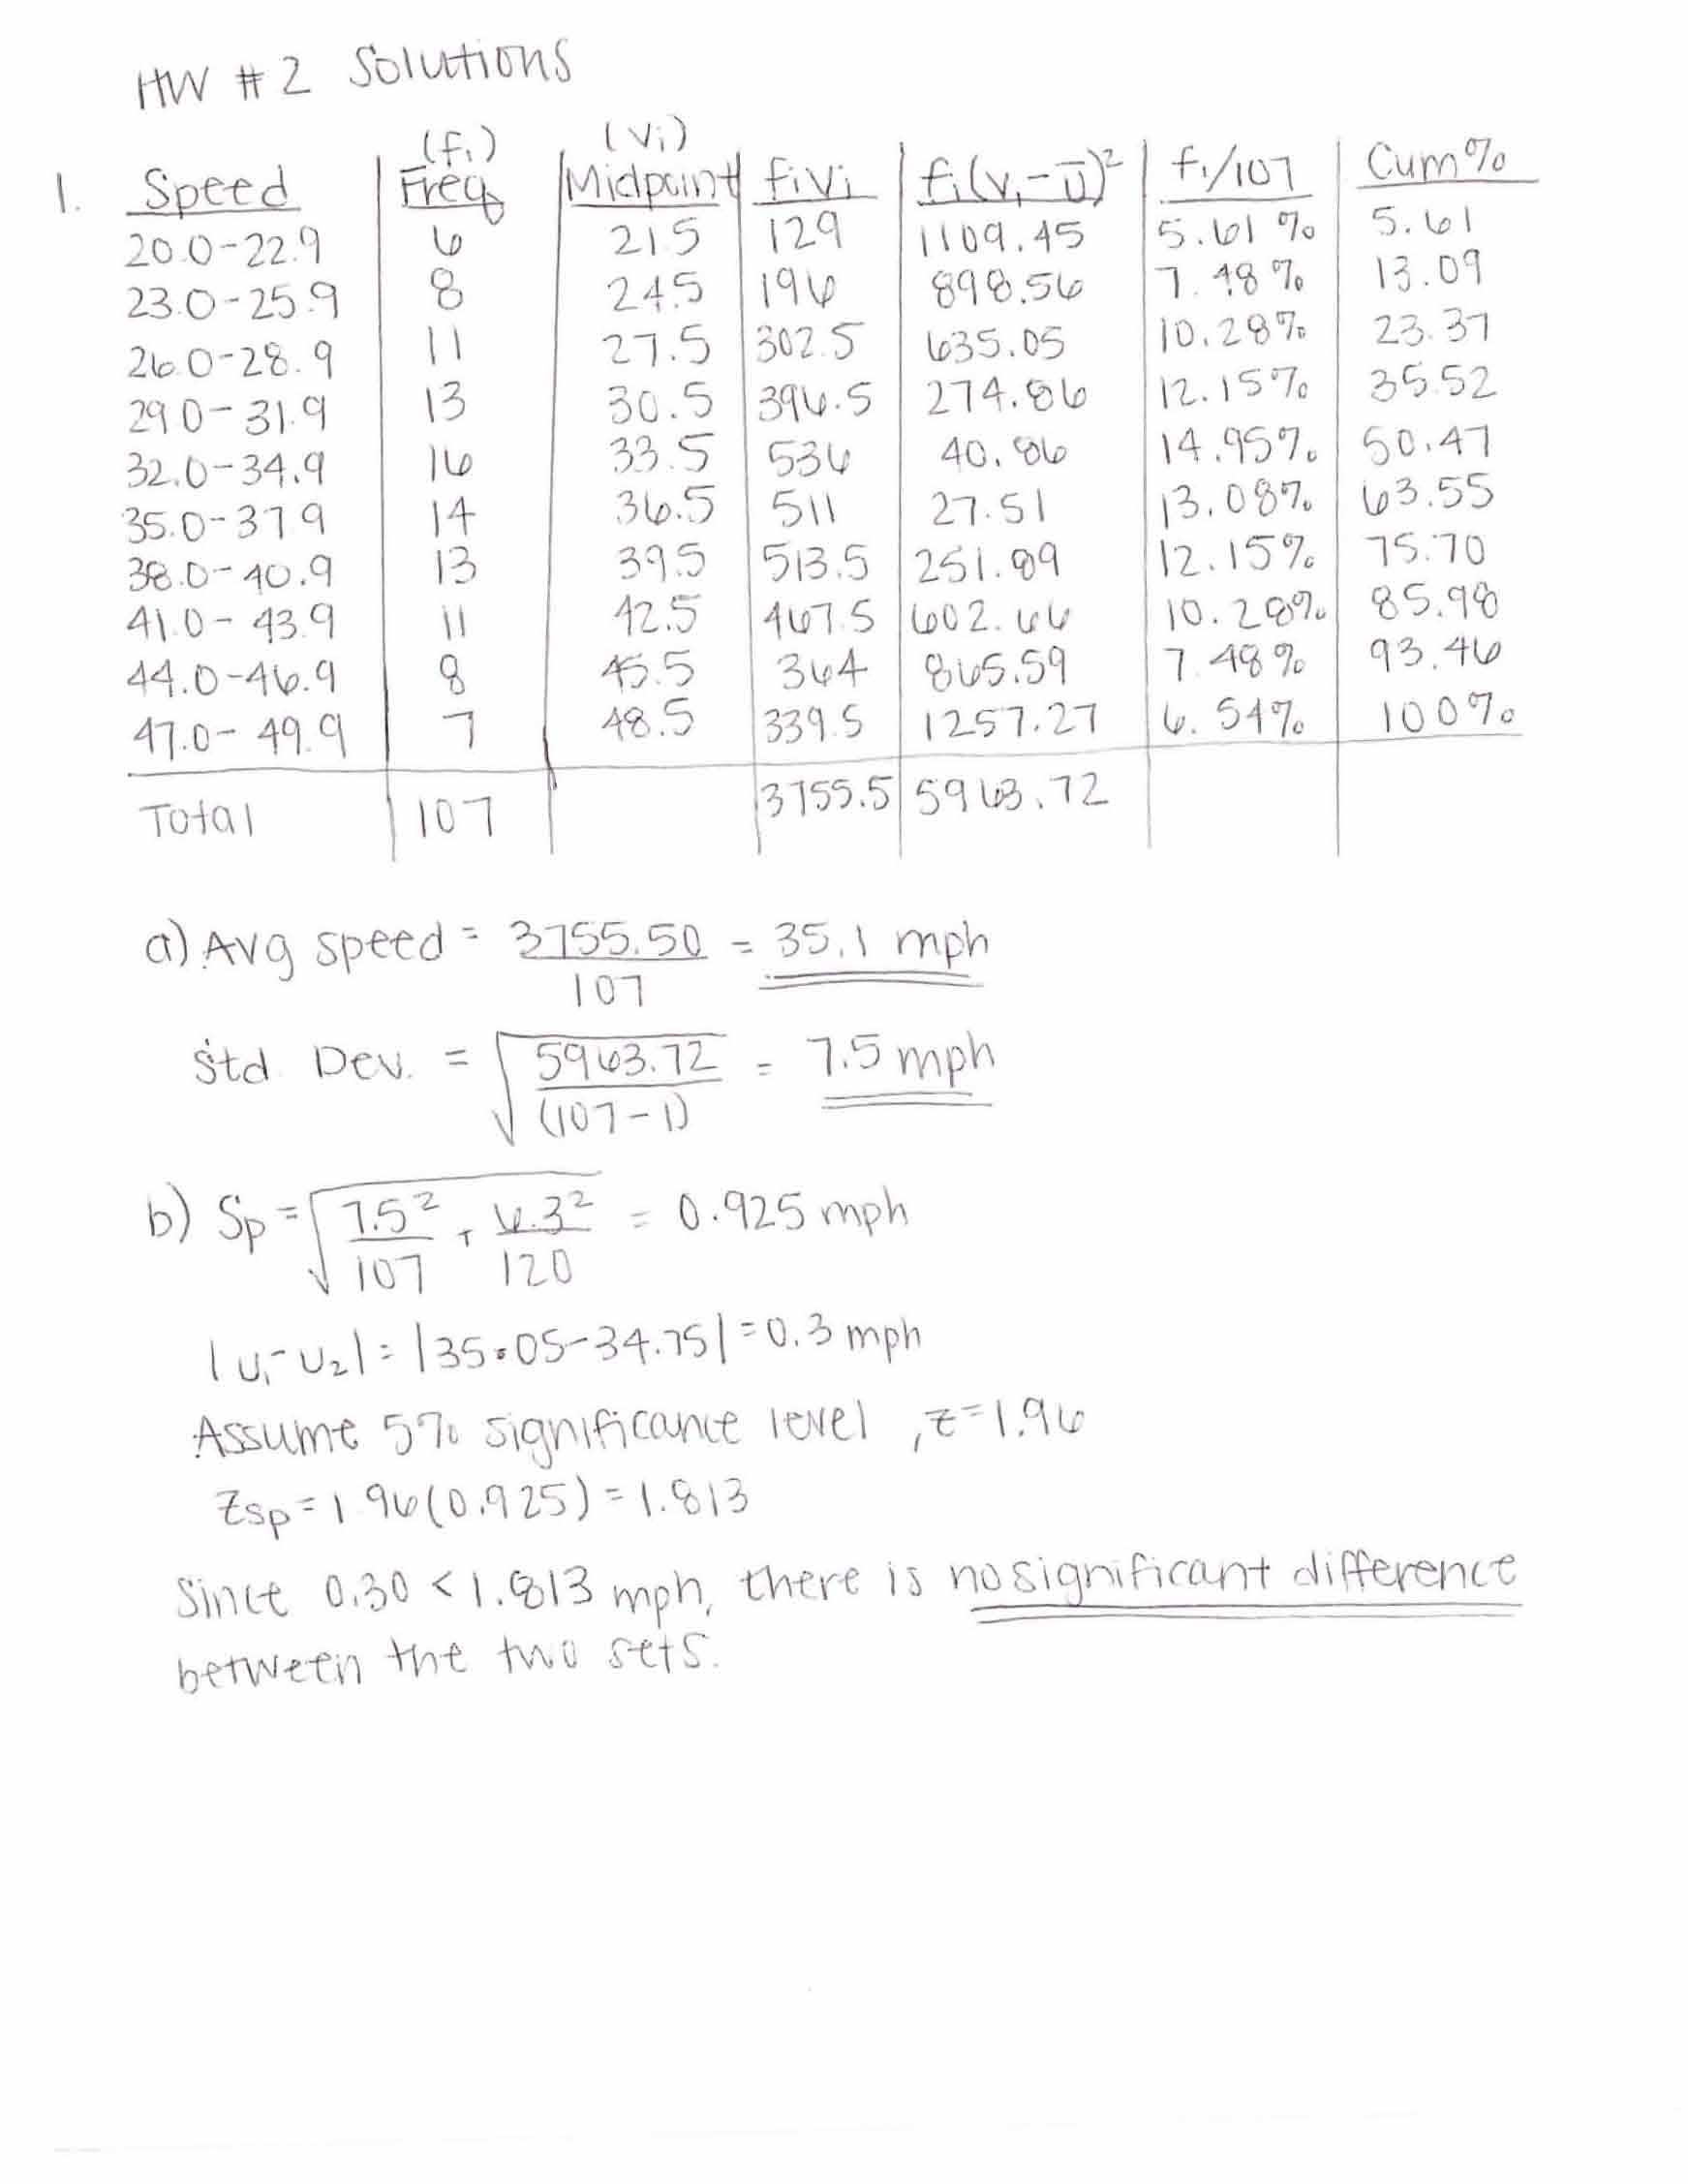 HW # 2 Solutions
(fi) (Vi)
1. Speed Freq Midpoint fiVi fi(Vi-ū)² fi/107 Cum%
20.0-22.9 6 21.5 129 1109.45 5.61% 5.61
23.0-25.9 8 24.5 196 898.56 7.48% 13.09
26.0-28.9 11 27.5 302.5 635.05 10.28% 23.37
29.0-31.9 13 30.5 396.5 274.86 12.15% 35.52
32.0-34.9 16 33.5 536 40.86 14.95% 50.47
35.0-37.9 14 36.5 511 27.51 13.08% 63.55
38.0-40.9 13 39.5 513.5 251.89 12.15% 75.70
41.0-43.9 11 42.5 467.5 602.66 10.28% 85.98
44.0-46.9 8 45.5 364 865.59 7.48% 93.46
47.0-49.9 7 48.5 339.5 1257.27 6.54% 100%
Total 107 3755.5 5963.72
a) Avg speed = 3755.50/107 = 35.1 mph
Std. Dev. = √(5963.72/(107-1)) = 7.5 mph
b) Sp = √(7.5²/107 + 6.3²/120) = 0.925 mph
|u₁-u₂| = |35.05-34.75| = 0.3 mph
Assume 5% significance level, z=1.96
Zsp = 1.96(0.925) = 1.813
Since 0.30 < 1.813 mph, there is no significant difference
between the two sets.